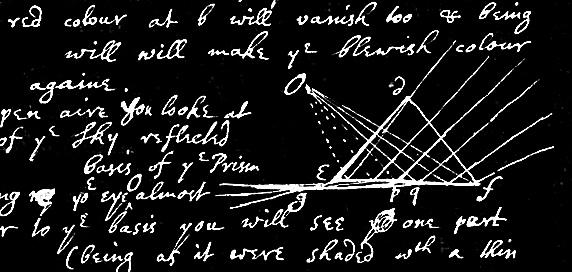 red colour at b will vanish too & being
will will make yᵉ blewish colour
againe.
pen aire you looke at
of yᵉ sky reflected
basis of yᵉ Prism
O d
ε g p q f
ng yoᵉ eye O almost
r to yᵉ basis you will see yᵒ one part
(being as it were shaded wᵗʰ a thin